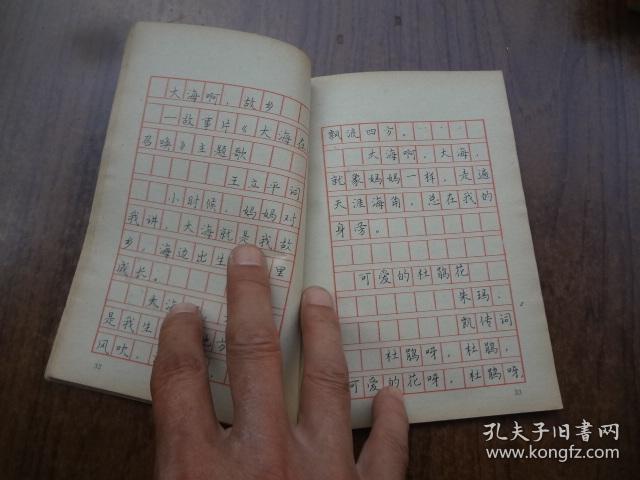 大海啊,故乡
—故事片《大海在
召唤》主题歌
王立平词
小时候,妈妈对
我讲,大海就是我故
乡,海边出生 里
成长。
大海
是我生
风吹,
32
飘流四方。……
大海啊,大海,
就象妈妈一样,走遍
天涯海角,总在我的
身旁。
可爱的杜鹃花
朱玛、
凯传词
杜鹃呀,杜鹃,
可爱的花呀,杜鹃呀,
33
孔夫子旧书网
www.kongfz.com